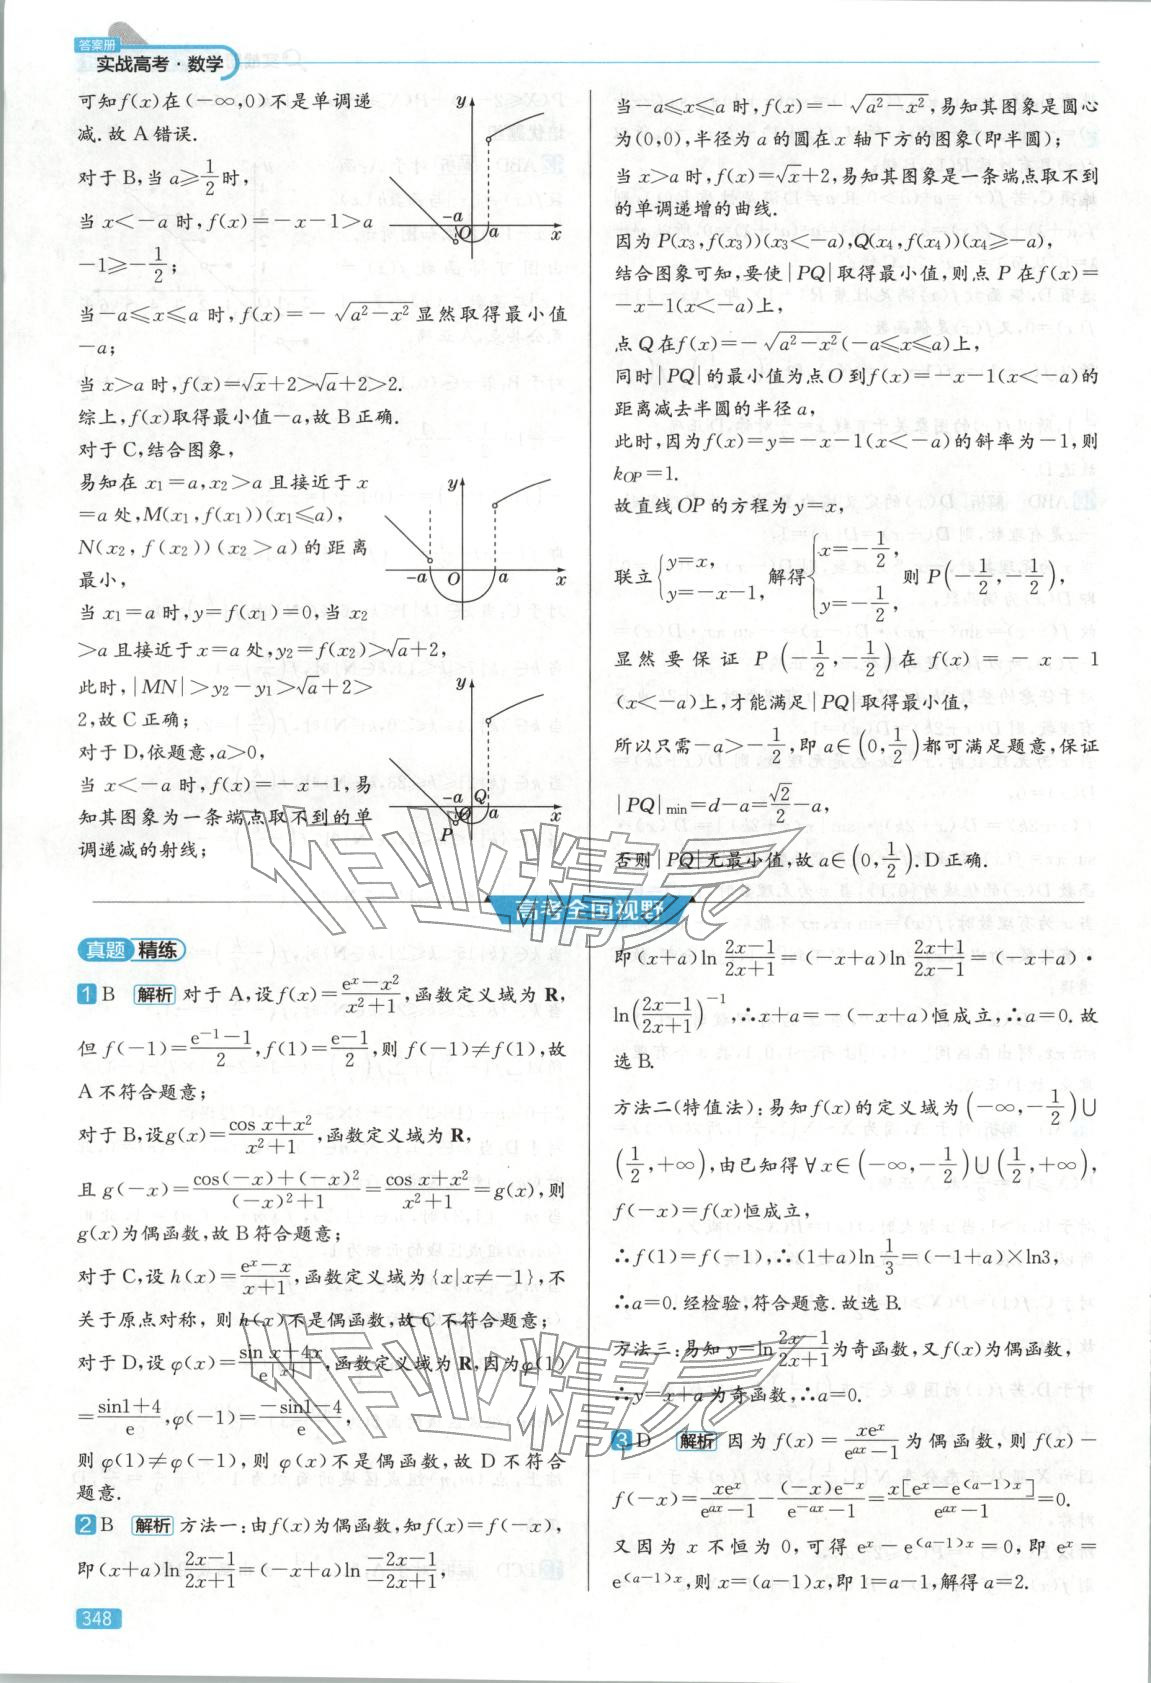 答案册
实战高考·数学
可知f(x)在(-∞,0)不是单调递
减.故A错误.
对于B,当a≥1/2时,
当x<-a时,f(x)=-x-1>a
-1≥-1/2;
当-a≤x≤a时,f(x)=-√(a²-x²)显然取得最小值
-a;
当x>a时,f(x)=√x+2>√a+2>2.
综上,f(x)取得最小值-a,故B正确.
对于C,结合图象,
易知在x₁=a,x₂>a且接近于x
=a处,M(x₁,f(x₁))(x₁≤a),
N(x₂,f(x₂))(x₂>a)的距离
最小,
当x₁=a时,y=f(x₁)=0,当x₂
>a且接近于x=a处,y₂=f(x₂)>√a+2,
此时,|MN|>y₂-y₁>√a+2>
2,故C正确;
对于D,依题意,a>0,
当x<-a时,f(x)=-x-1,易
知其图象为一条端点取不到的单
调递减的射线;
y
-a O a x
y
-a O a x
y
-a Q
P O a x
当-a≤x≤a时,f(x)=-√(a²-x²),易知其图象是圆心
为(0,0),半径为a的圆在x轴下方的图象(即半圆);
当x>a时,f(x)=√x+2,易知其图象是一条端点取不到
的单调递增的曲线.
因为P(x₃,f(x₃))(x₃<-a),Q(x₄,f(x₄))(x₄≥-a),
结合图象可知,要使|PQ|取得最小值,则点P在f(x)=
-x-1(x<-a)上,
点Q在f(x)=-√(a²-x²)(-a≤x≤a)上,
同时|PQ|的最小值为点O到f(x)=-x-1(x<-a)的
距离减去半圆的半径a,
此时,因为f(x)=y=-x-1(x<-a)的斜率为-1,则
k_OP=1.
故直线OP的方程为y=x,
联立{y=x, y=-x-1, 解得{x=-1/2, y=-1/2, 则P(-1/2,-1/2),
显然要保证P(-1/2,-1/2)在f(x)=-x-1
(x<-a)上,才能满足|PQ|取得最小值,
所以只需-a>-1/2,即a∈(0,1/2)都可满足题意,保证
|PQ|min=d-a=√2/2-a,
否则|PQ|无最小值,故a∈(0,1/2).D正确.
高考全国视野
真题 精练
1 B 解析 对于A,设f(x)=(eˣ-x²)/(x²+1),函数定义域为R,
但f(-1)=(e⁻¹-1)/2,f(1)=(e-1)/2,则f(-1)≠f(1),故
A不符合题意;
对于B,设g(x)=(cos x+x²)/(x²+1),函数定义域为R,
且g(-x)=(cos(-x)+(-x)²)/((-x)²+1)=(cos x+x²)/(x²+1)=g(x),则
g(x)为偶函数,故B符合题意;
对于C,设h(x)=(eˣ-x)/(x+1),函数定义域为{x|x≠-1},不
关于原点对称,则h(x)不是偶函数,故C不符合题意;
对于D,设φ(x)=(sin x+4x)/e^|x|,函数定义域为R,因为φ(1)
=(sin1+4)/e,φ(-1)=(-sin1-4)/e,
则φ(1)≠φ(-1),则φ(x)不是偶函数,故D不符合
题意.
2 B 解析 方法一:由f(x)为偶函数,知f(x)=f(-x),
即(x+a)ln (2x-1)/(2x+1)=(-x+a)ln (-2x-1)/(-2x+1),
即(x+a)ln (2x-1)/(2x+1)=(-x+a)ln (2x+1)/(2x-1)=(-x+a)·
ln((2x-1)/(2x+1))⁻¹,∴x+a=-(-x+a)恒成立,∴a=0.故
选B.
方法二(特值法):易知f(x)的定义域为(-∞,-1/2)∪
(1/2,+∞),由已知得∀x∈(-∞,-1/2)∪(1/2,+∞),
f(-x)=f(x)恒成立,
∴f(1)=f(-1),∴(1+a)ln 1/3=(-1+a)×ln3,
∴a=0.经检验,符合题意.故选B.
方法三:易知y=ln (2x-1)/(2x+1)为奇函数,又f(x)为偶函数,
∴y=x+a为奇函数,∴a=0.
3 D 解析 因为f(x)=xeˣ/(e^(ax)-1)为偶函数,则f(x)-
f(-x)=xeˣ/(e^(ax)-1)-(-x)e⁻ˣ/(e^(-ax)-1)=x[eˣ-e^((a-1)x)]/(e^(ax)-1)=0.
又因为x不恒为0,可得eˣ-e^((a-1)x)=0,即eˣ=
e^((a-1)x),则x=(a-1)x,即1=a-1,解得a=2.
348
作业精灵
作业精灵